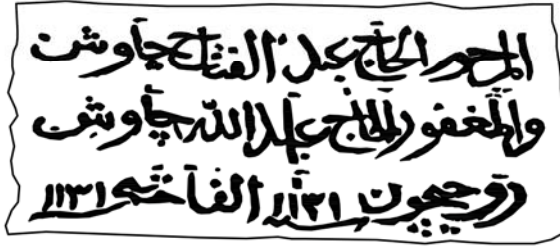 المرحوم الحاج عبد الفتاح چاوش
والمغفور الحاج عبد الله چاوش
روحيچون ١١٣١ الفاتحه ١١٣١